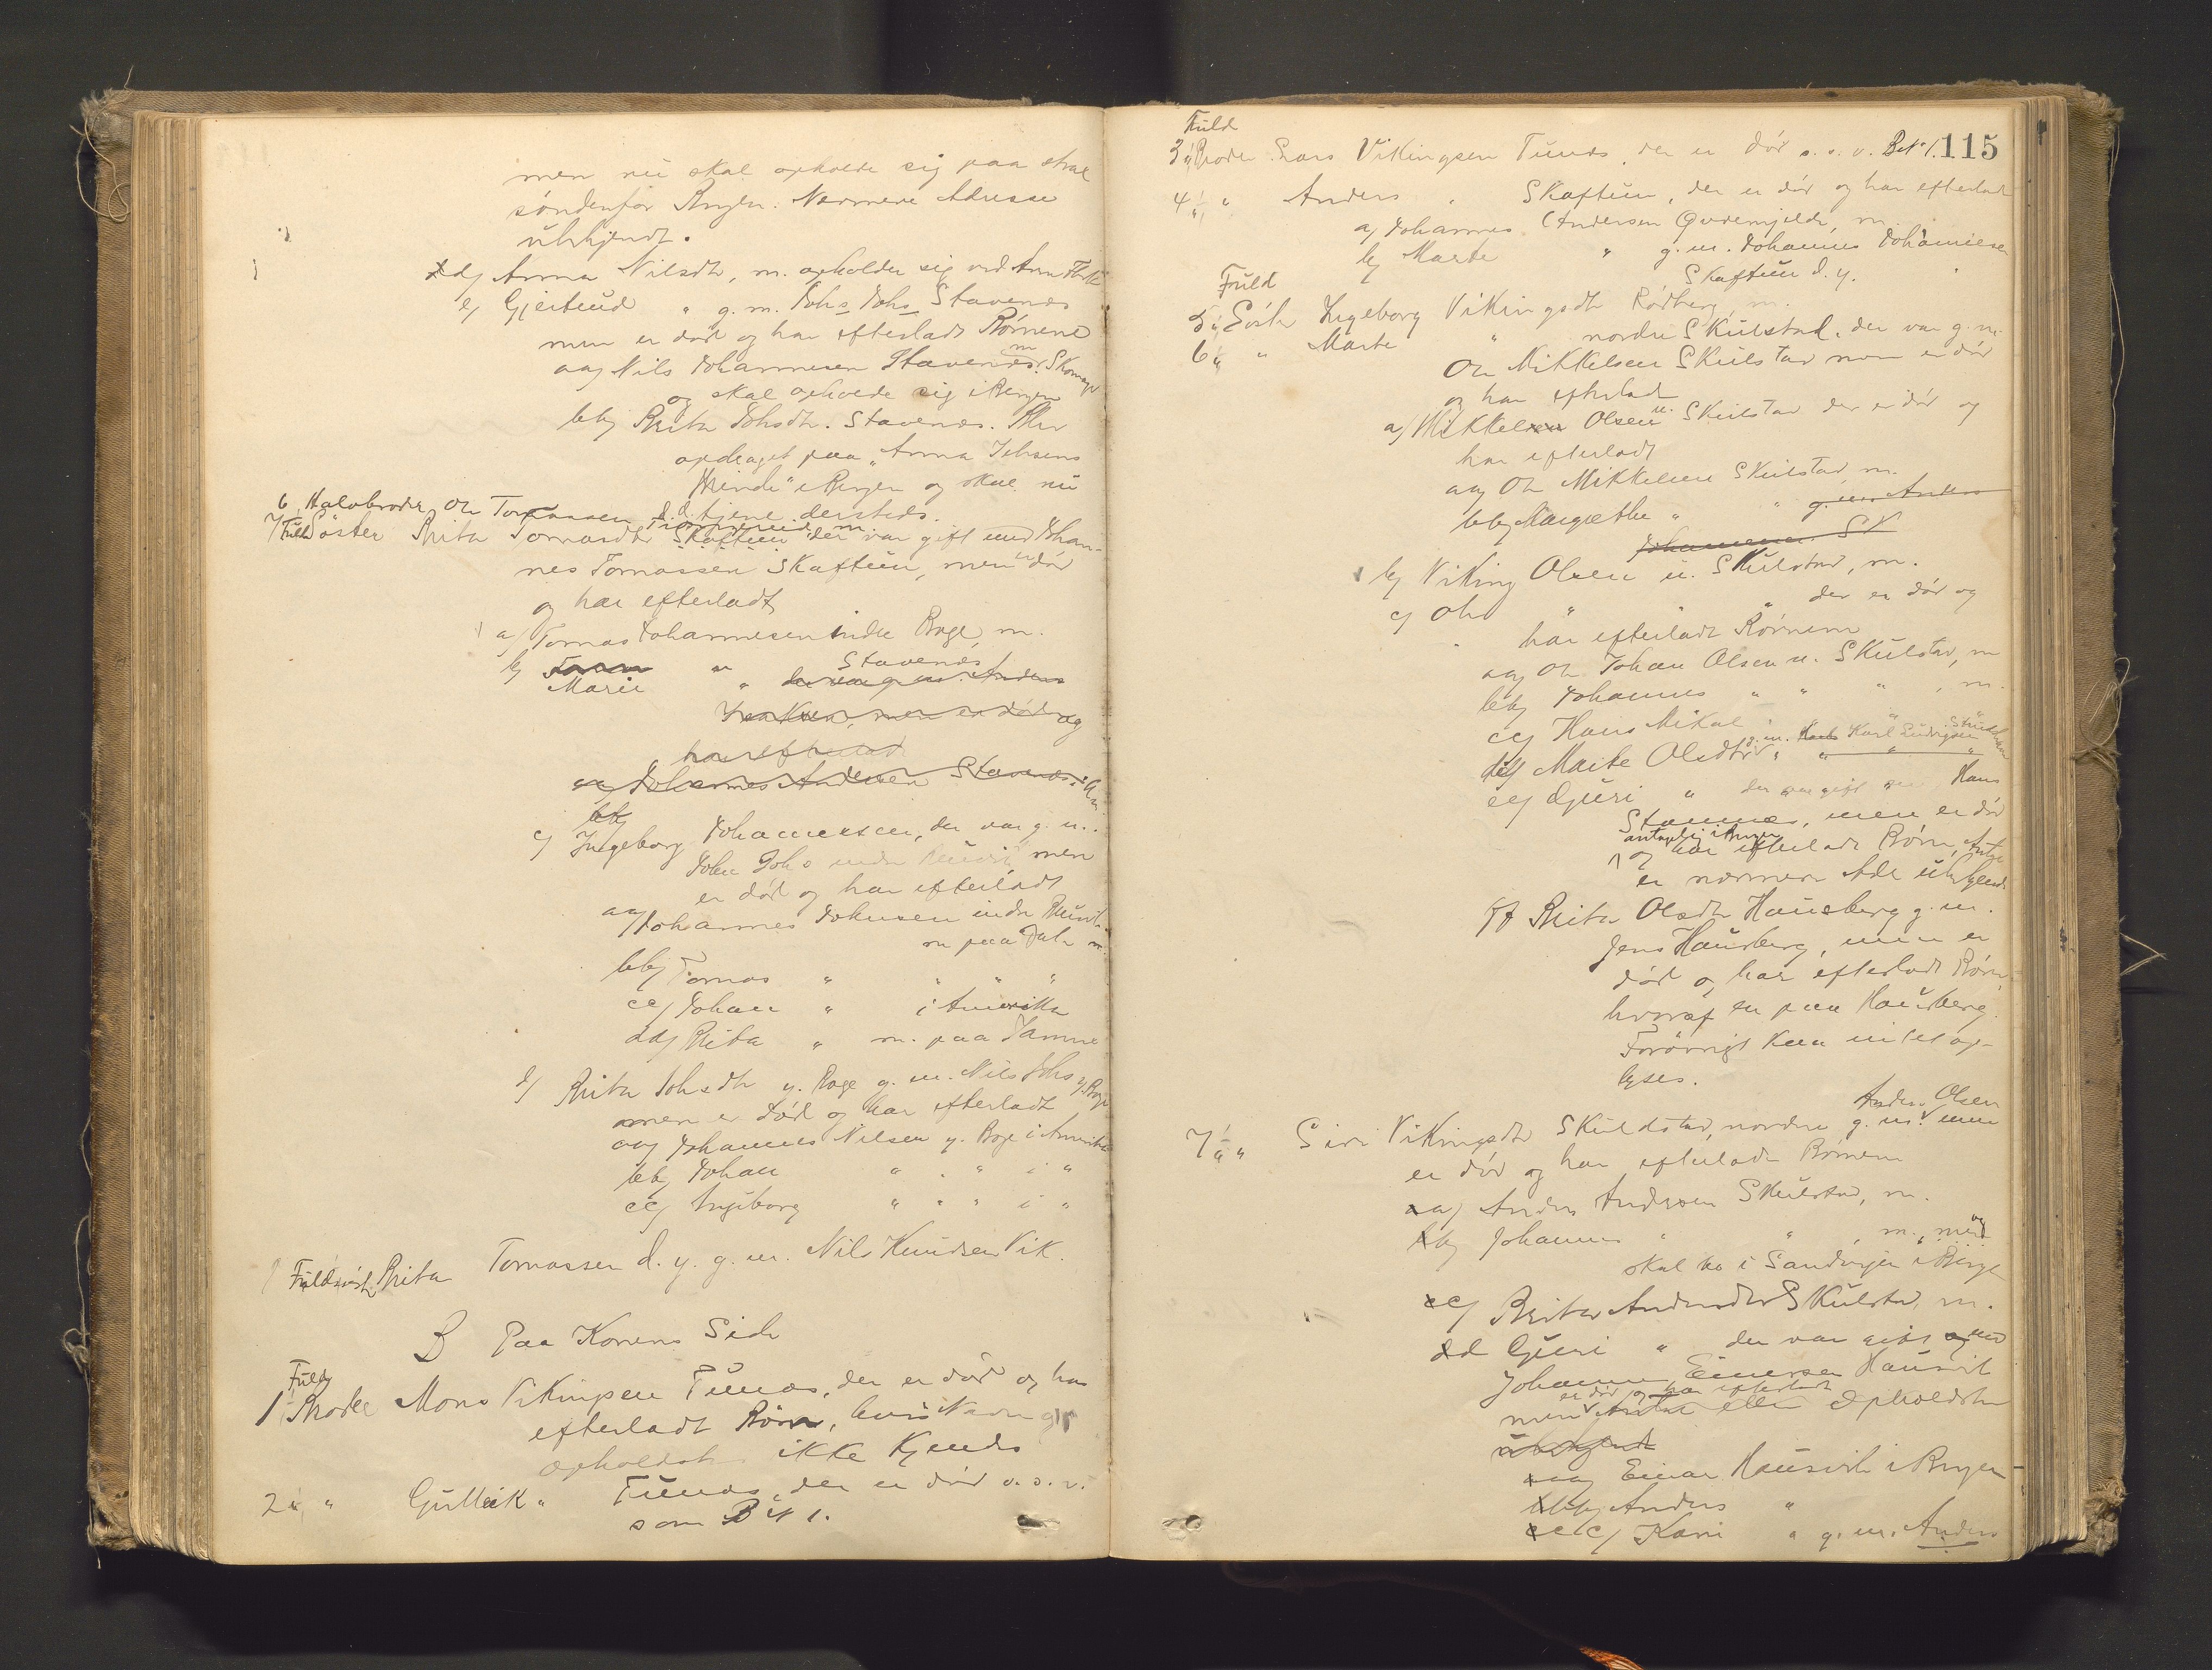 men nu skal opholde sig paa
søndenfor Bergen. Nærmere Adresse
übekjendt.
d) Anna Nilsdtr, m. opholder sig ved
e) Gjertrud " g. m. Johs Johs Stavenes
men er død og har efterladt Børnene
aa) Nils Johannesen Stavenes, m
og skal opholde sig i Bergen
bb) Brita Johsdtr. Stavenes. Blev
opdraget paa "Anna Jebsens
Minde" i Bergen og skal nü
d. d. tjene dersteds.
6, Halvbroder Ole Tomassen m.
7, Fuld Søster Brita Tomasdtr Skaftün der var gift med Johan-
nes Tomassen Skaftün, men er død
og har efterladt
a) Tomas Johannesen indre Boge, m.
b) Marie " Stavenes,
der var g. m. Anders
Isaksen, men er død og
har efterlad
aa) Johannes Andersen Stavenes i Am.
bb)
c) Ingeborg Johannesen, der var g. m.
John Johs indre men
er død og har efterladt
aa) Johannes Johnsen indre
m paa m.
bb) Tomas " " " "
cc) Johan " i Amerika
dd) Brita " m. paa
d) Brita Johsdtr y. Boge g. m. Nils Johs y. Boge
men er død og har efterladt
aa) Johannes Nilsen y. Boge i Amerika
bb) Johan " " " i "
cc) Ingeborg " " " i "
Fuldsøster Brita Tomassen d. y. g. m. Nils Knudsen Vik.
B Paa Konens Side
Fuld
1, Broder Mons Vikingsen Tunæs, der er død og har
efterladt Børn, hvis Navn og
opholdsted ikke Kjendes
2, " " Gulleik " Tunæs, der er død o. s. v.
som B № 1.
115
Fuld
3, Broder Lars Vikingsen Tunæs, der er død o. s. v. B № 1.
4, " " Anders " Skaftün, der er død og har efterladt
a) Johannes Andersen Øvdemjelde, m
b) Marte " g. m. Johannes Johannesen
Skaftün d. y.
Fuld
5, Søster Ingeborg Vikingsdtr Rødberg, m.
6, " " Marte " nordre Skulstad, der var g. m.
Ole Mikkelsen Skulstad men er død
og har efterlad
a) Mikkel Olsen n. Skulstad der er død og
har efterladt
aa) Ole Mikkelsen Skulstad, m.
bb) Margrethe " " g. m. Anders
Johannesen SK
b) Viking Olsen n. Skulstad, m.
c) Ole " " " der er død og
har efterladt Børnene
aa) Ole Johan Olsen n. Skulstad, m
bb) Johannes " " " , m.
cc) Hans Mikal " "
dd) Marte Olsdtr g. m. Karl Ludvigsen
ee) Guri " der var gift m Hans
, men er død
antagelig i Bergen
og har efterladt Børn,
er nærmere Adr übekjendt
ff Brita Olsdtr Hausberg g. m.
Jens Hausberg, men er
død og har efterladt Børn
hvoraf en paa Hausberg.
Forøvrigt kan intet op-
lyses.
7, " " Siri Vikingsdtr Skuldstad, nordre g. m. Anders Olsen men
er død og har efterladt Børnene
a) Anders Andersen Skulstad, m.
b) Johannes " " , m. og
skal bo i Sandvigen i Bergen
c) Brita Andersdtr Skulstad, m.
d Guri " der var gift med
Johannes Einersen Hausvik
men er død og har efterladt
eller Opholdsted
übekjendt
aa) Einar Hausvik i Bergen
bb) Anders "
cc) Kari " g. m. Anders